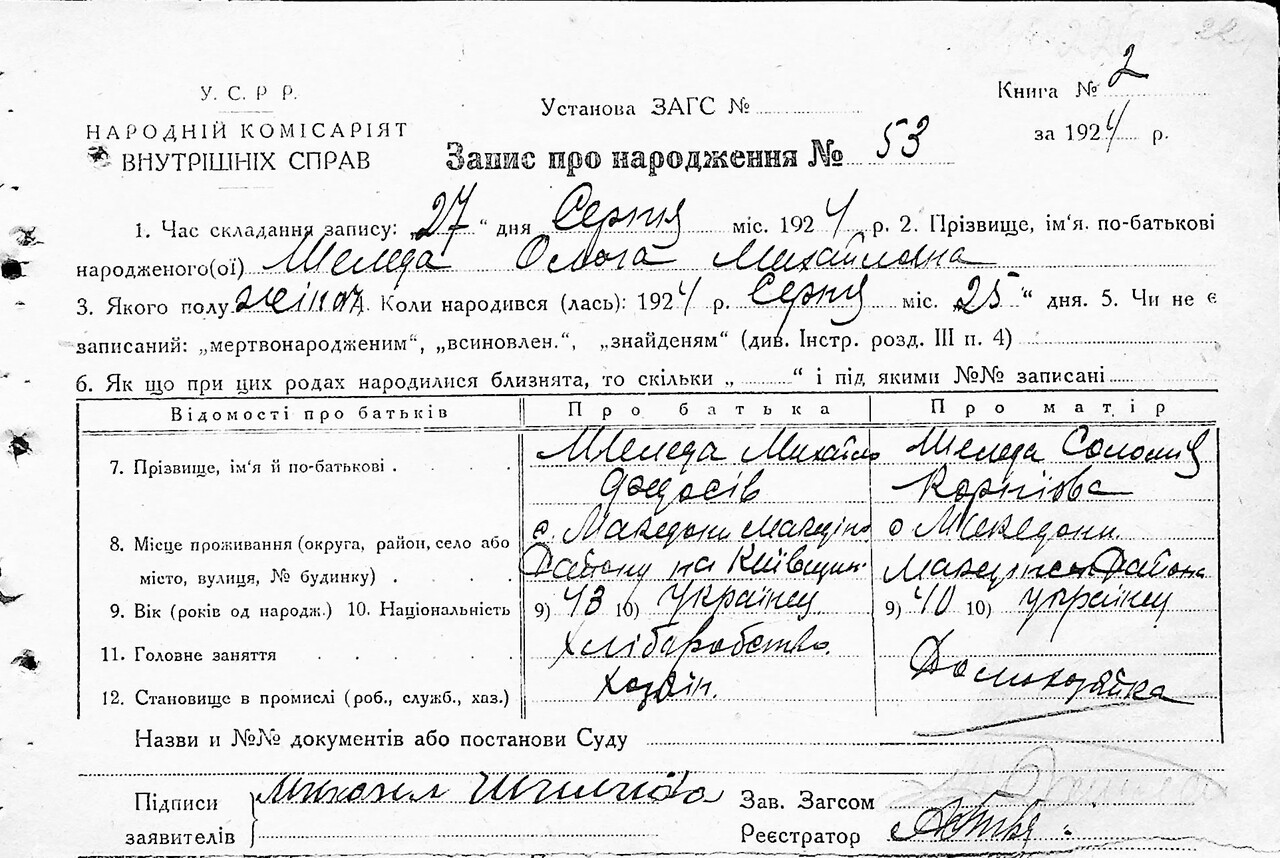 У. С. Р Р.
НАРОДНІЙ КОМІСАРІЯТ
ВНУТРІШНІХ СПРАВ
Установа ЗАГС №
Книга № 2
за 1924 р.
Запис про народження № 53
1. Час складання запису: „27“ дня Серпня міс. 1924 р. 2. Прізвище, ім‘я. по-батькові
народженого(ої) Шеледа Ольга Михайлівна
3. Якого полу жіноч. Коли народився (лась): 1924 р. Серпня міс. „25“ дня. 5. Чи не є
записаний: „мертвонародженим“, „всиновлен.“, „знайденям“ (див. Інстр. розд. III п. 4)
6. Як що при цих родах народилися близнята, то скільки „ “ і під якими №№ записані
Відомості про батьків Про батька Про матір
7. Прізвище, ім‘я й по-батькові Шеледа Михайло Шеледа Соломия
Федосів Корніїва
8. Місце проживання (округа, район, село або с. Македони с Македони
місто, вулиця, № будинку) Району на Київщин. Района
9. Вік (років од народж.) 10. Національність 9) 43 10) Українец 9) 40 10) Українец
11. Головне заняття Хліборобство.
12. Становище в промислі (роб., служб., хаз.) Хозяїн. Домохозяйка
Назви и №№ документів або постанови Суду
Підписи
заявителів
Зав. Загсом
Реєстратор